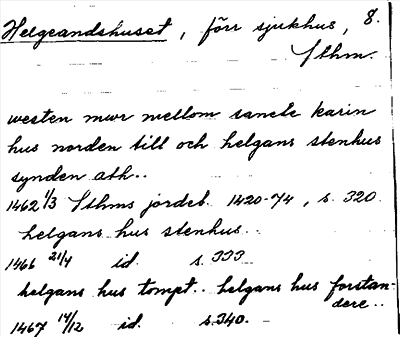 Helgeandshuset, förr sjukhus, 8.
Sthm.
westen mwr mellom sancte karin
hus norden till och helgans stenhus
synden ath..
1462 1/3 Sthms jordeb. 1420-74, s. 320.
helgans hus stenhus..
1466 21/4 id. s. 333
helgans hus tompt.. helgans hus forstan-
dere..
1467 14/12 id. s. 340.